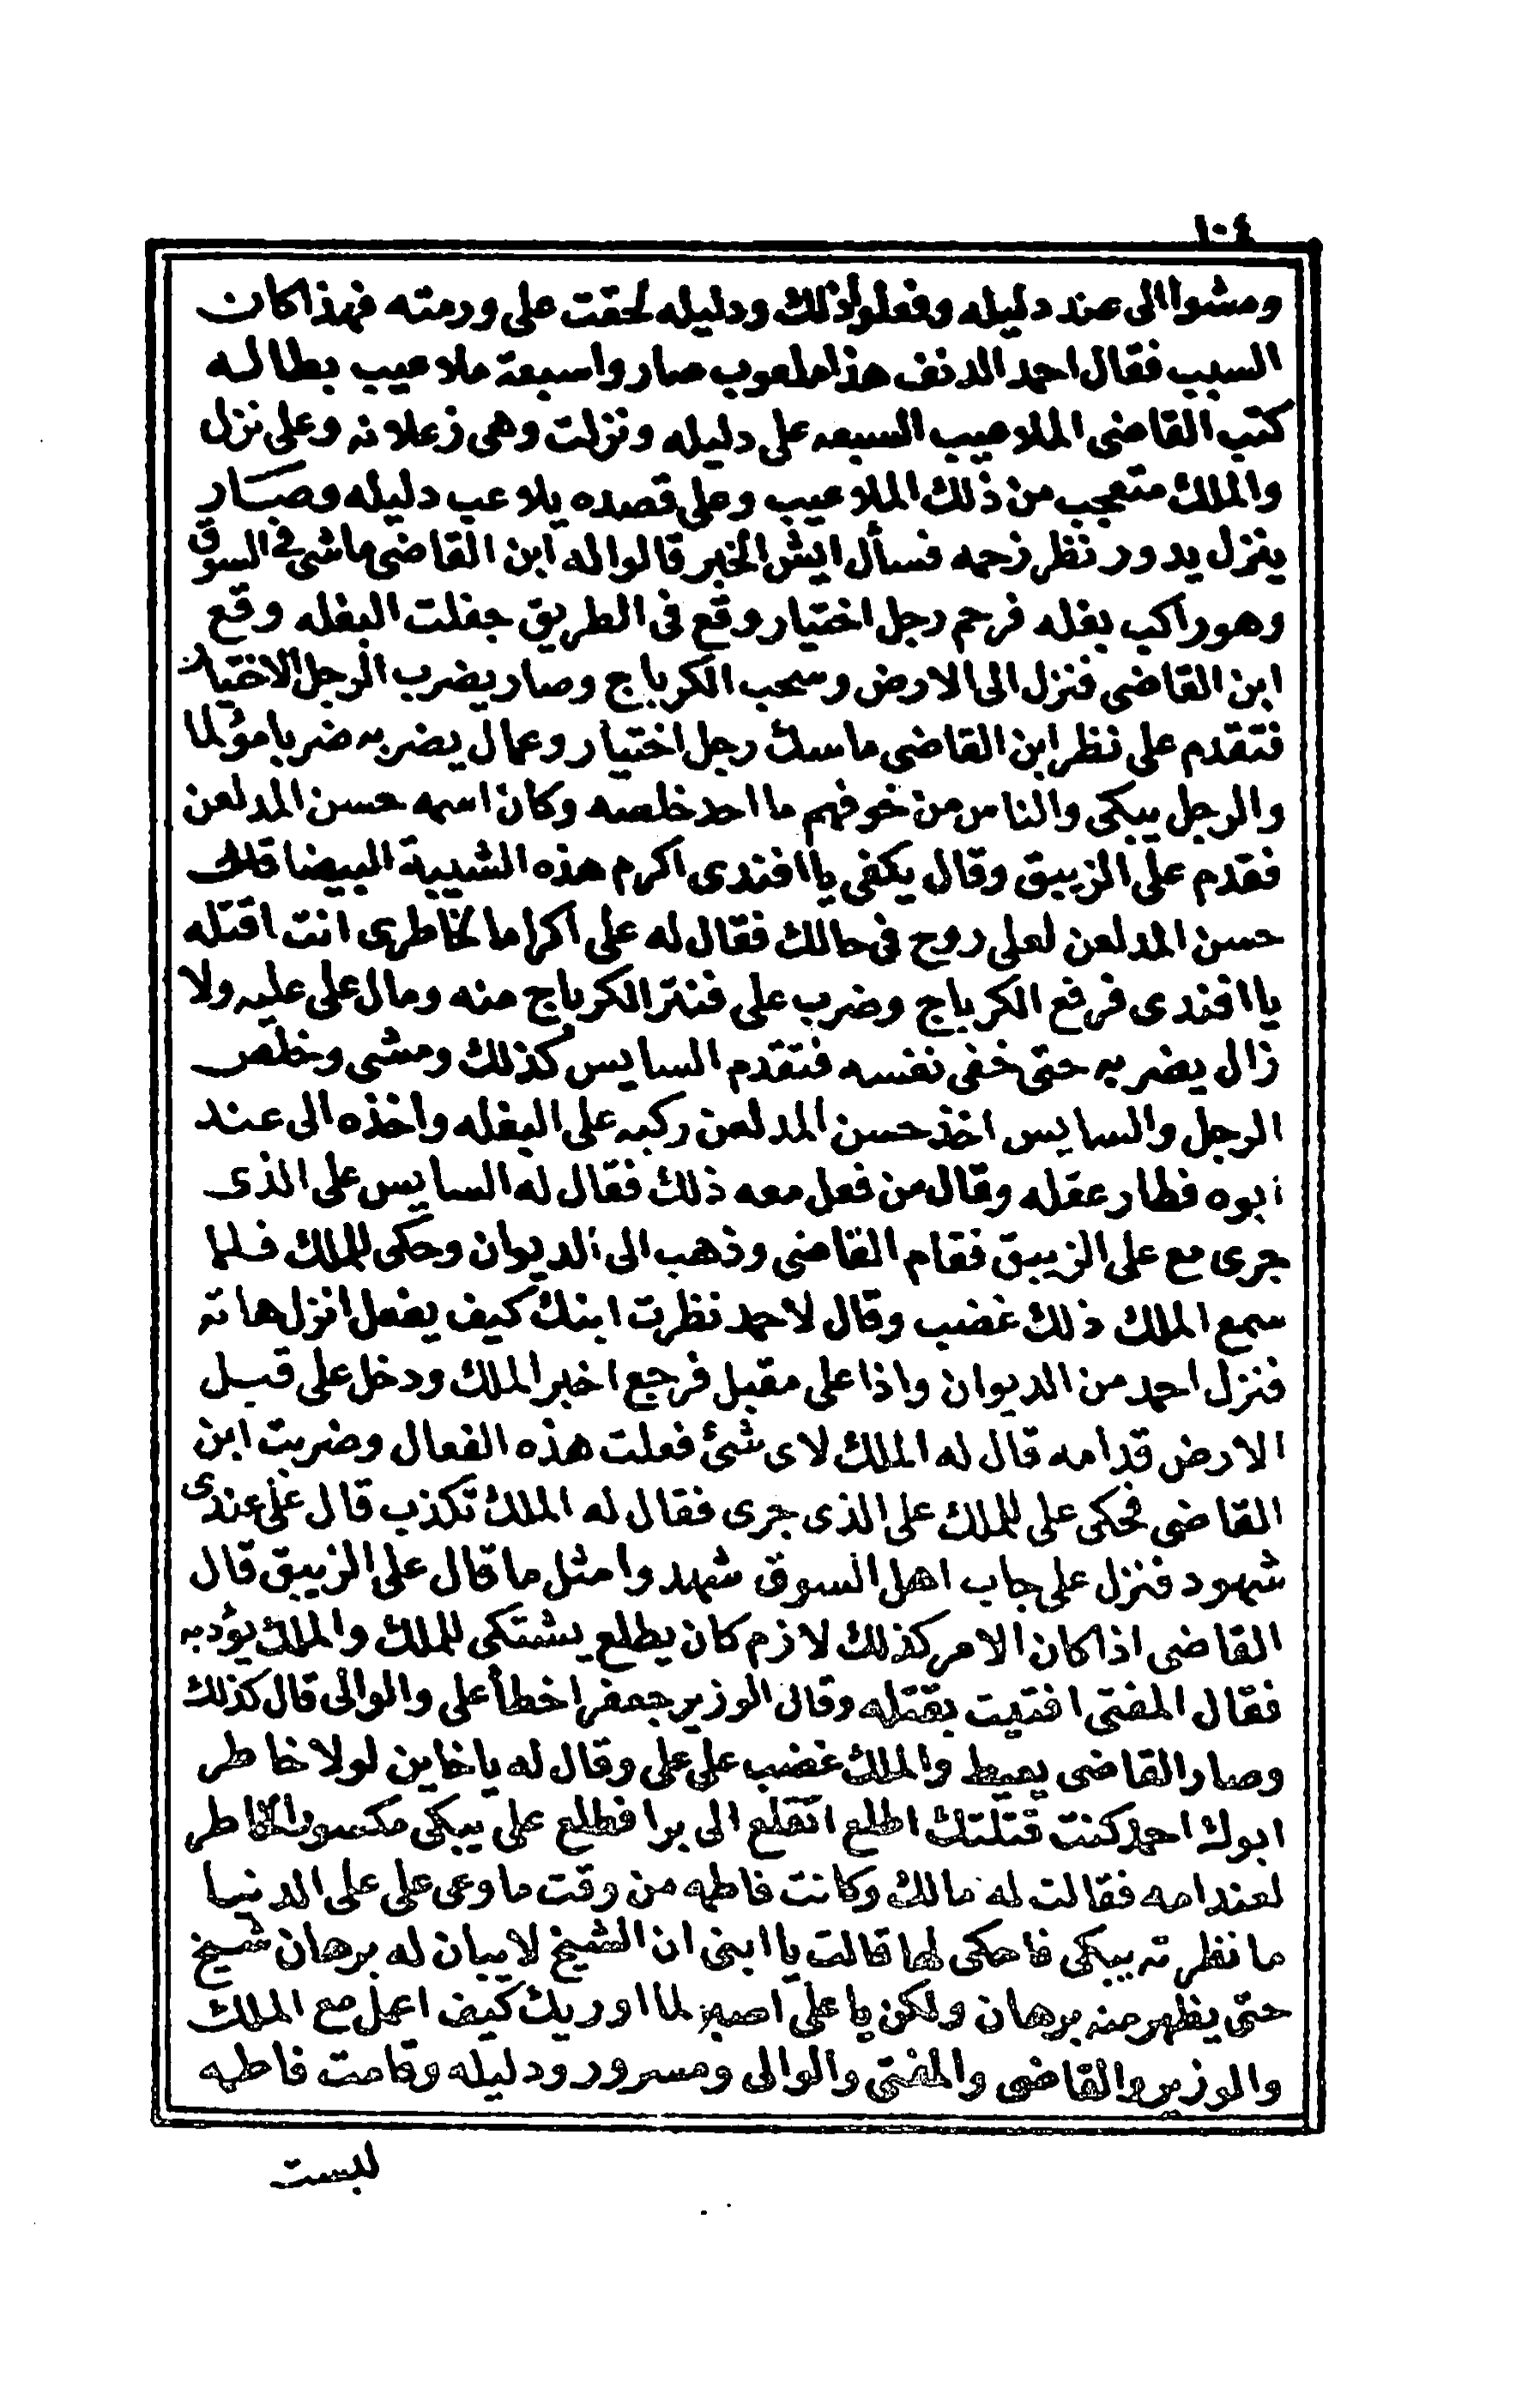 ١٠٤
ومشوا الى عند دليله وفعلوا ذلك ودليله لحقت على ورمته فهذا كان
السبب فقال احمد الدنف هذا ملعوب صاروا سبعة ملاعيب بطاله
كتب القاضى الملاعيب السبعه على دليله ونزلت وهى زعلانه وعلى نزل
والملك متعجب من ذلك الملاعيب وعلى قصده يلاعب دليله وصار
ينزل يدور نظر زحمه فسأل ايش الخبر قالوا له ابن القاضى ماشى فى السوق
وهو راكب بغله فرحم رجل اختيار وقع فى الطريق جفلت البغله وقع
ابن القاضى فنزل الى الارض وسحب الكرباج وصار يضرب الرجل الاختيار
فتقدم على نظر ابن القاضى ماسك رجل اختيار وعمال يضربه ضربا مؤلما
والرجل يبكى والناس من خوفهم ما احد خلصه وكان اسمه حسن المدلعن
فقدم على الزيبق وقال يكفى يا افندى اكرم هذه الشيبة البيضا قال
حسن المدلعن لعلى روح فى حالك فقال له على اكراما لخاطرى انت اقتله
يا افندى فرفع الكرباج وضرب على فنتر الكرباج منه ومال على عليه ولا
زال يضربه حتى خفى نفسه فتقدم السايس كذلك ومشى وخلص
الرجل والسايس اخذ حسن المدلعن ركبه على البغله واخذه الى عند
ابوه فطار عقله وقال من فعل معه ذلك فقال له السايس على الذى
جرى مع على الزيبق فقام القاضى وذهب الى الديوان وحكى للملك فلما
سمع الملك ذلك غضب وقال لاحمد نظرت ابنك كيف يفعل انزل هاته
فنزل احمد من الديوان واذا على مقبل فرجع اخبر الملك ودخل على قبل
الارض قدامه قال له الملك لاى شئ فعلت هذه الفعال وضربت ابن
القاضى فحكى على للملك على الذى جرى فقال له الملك تكذب قال على عندى
شهود فنزل على جاب اهل السوق شهدوا مثل ما قال على الزيبق قال
القاضى اذا كان الامر كذلك لازم كان يطلع يشتكى للملك والملك يؤدبه
فقال المفتى افتيت بقتله وقال الوزير جعفر اخطأ على والوالى قال كذلك
وصار القاضى يعيط والملك غضب على على وقال له يا خاين لولا خاطر
ابوك احمد كنت قتلتك اطلع انقلع الى برا فطلع على يبكى مكسور الخاطر
لعند امه فقالت له مالك وكانت فاطمه من وقت ما وعى على على الدنيا
ما نظرته يبكى فاحكى لها قالت يا ابنى ان الشيخ لا يبان له برهان شيخ
حتى يظهر منه برهان ولكن يا على اصبر لما اوريك كيف اعمل مع الملك
والوزير والقاضى والمفتى والوالى ومسرور ودليله وقامت فاطمه
لبست